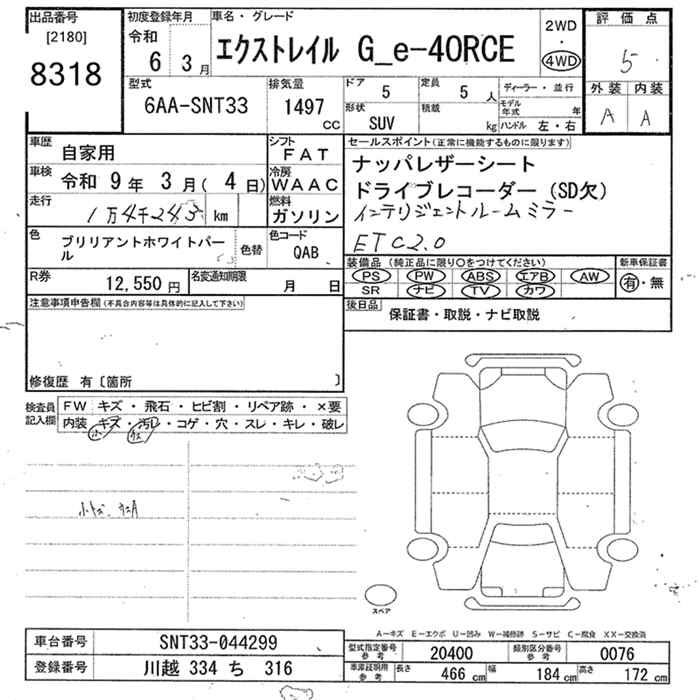 出品番号
[2180]
8318
初度登録年月
令和
6 3月
車名・グレード
エクストレイル G_e-4ORCE
2WD
・
4WD
評価点
5
外装 内装
A A
型式
6AA-SNT33
排気量
1497 CC
ドア 5
定員 5 人
形状 SUV
積載 kg
ディーラー・並行
モデル年式 年
ハンドル 左・右
車歴 自家用
シフト FAT
車検 令和 9年 3月( 4日)
冷房 WAAC
走行 1万4千243 km
燃料 ガソリン
色 ブリリアントホワイトパール
色替
色コード QAB
R券 12,550 円
名変通知期限 月 日
セールスポイント(正常に機能するものに限ります)
ナッパレザーシート
ドライブレコーダー(SD欠)
インテリジェントルームミラー
ETC2.0
装備品(純正品に限り○をつけてください)
PS PW ABS エアB AW
SR ナビ TV カワ
新車保証書
有・無
後日品
保証書・取説・ナビ取説
注意事項申告欄(不具合内容等は具体的に記入して下さい)
修復歴 有〔箇所 〕
検査員記入欄
FW キズ・飛石・ヒビ割・リペア跡・×要
内装 キズ・汚レ・コゲ・穴・スレ・キレ・破レ
スペア
A－キズ E－エクボ U－凹み W－補修跡 S－サビ C－腐食 XX－交換済
車台番号 SNT33-044299
登録番号 川越 334 ち 316
型式指定番号参考 20400
類別区分番号参考 0076
車庫証明用参考 長さ 466 cm 幅 184 cm 高さ 172 cm